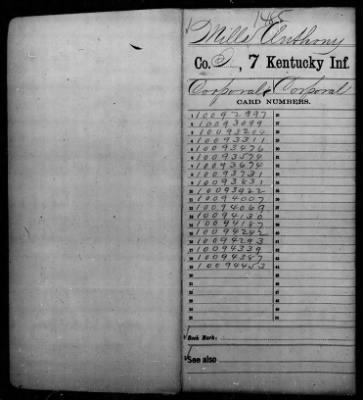 1485
Mills Anthony
Co. , 7 Kentucky Inf.
Corporal Corporal
CARD NUMBERS.
1 10092997
2 10093099
3 10093204
4 10093311
5 10093476
6 10093574
7 10093674
8 10093731
9 10093831
10 10093922
11 10094007
12 10094069
13 10094130
14 10094187
15 10094242
16 10094293
17 10094339
18 10094387
19 10094453
Book Mark:
See also